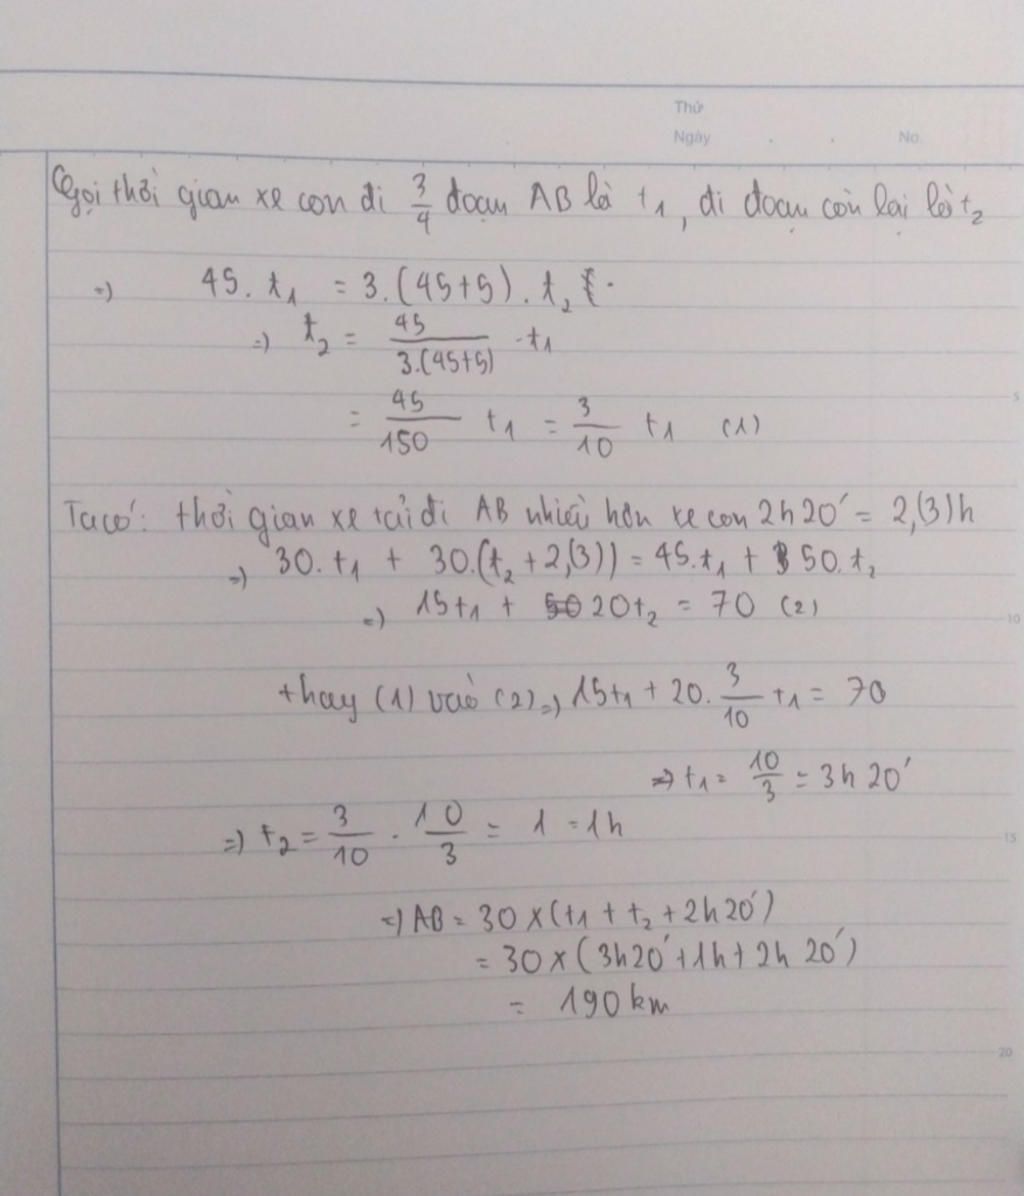 Thứ
Ngày . . No.
Gọi thời gian xe con đi 3/4 đoạn AB là t₁, đi đoạn còn lại là t₂
=) 45. t₁ = 3.(45+5). t₂
=) t₂ = 45/3.(45+5) . t₁
= 45/150 t₁ = 3/10 t₁ (1)
5
Ta có: thời gian xe tải đi AB nhiều hơn xe con 2h20' = 2,(3)h
=) 30.t₁ + 30.(t₂ + 2,(3)) = 45.t₁ + 50.t₂
=) 15t₁ + 20t₂ = 70 (2)
10
thay (1) vào (2) =) 15t₁ + 20. 3/10 t₁ = 70
=) t₁ = 10/3 = 3h 20'
=) t₂ = 3/10 . 10/3 = 1 = 1h
15
=) AB = 30 x (t₁ + t₂ + 2h20')
= 30 x (3h20' + 1h + 2h 20')
= 190 km
20